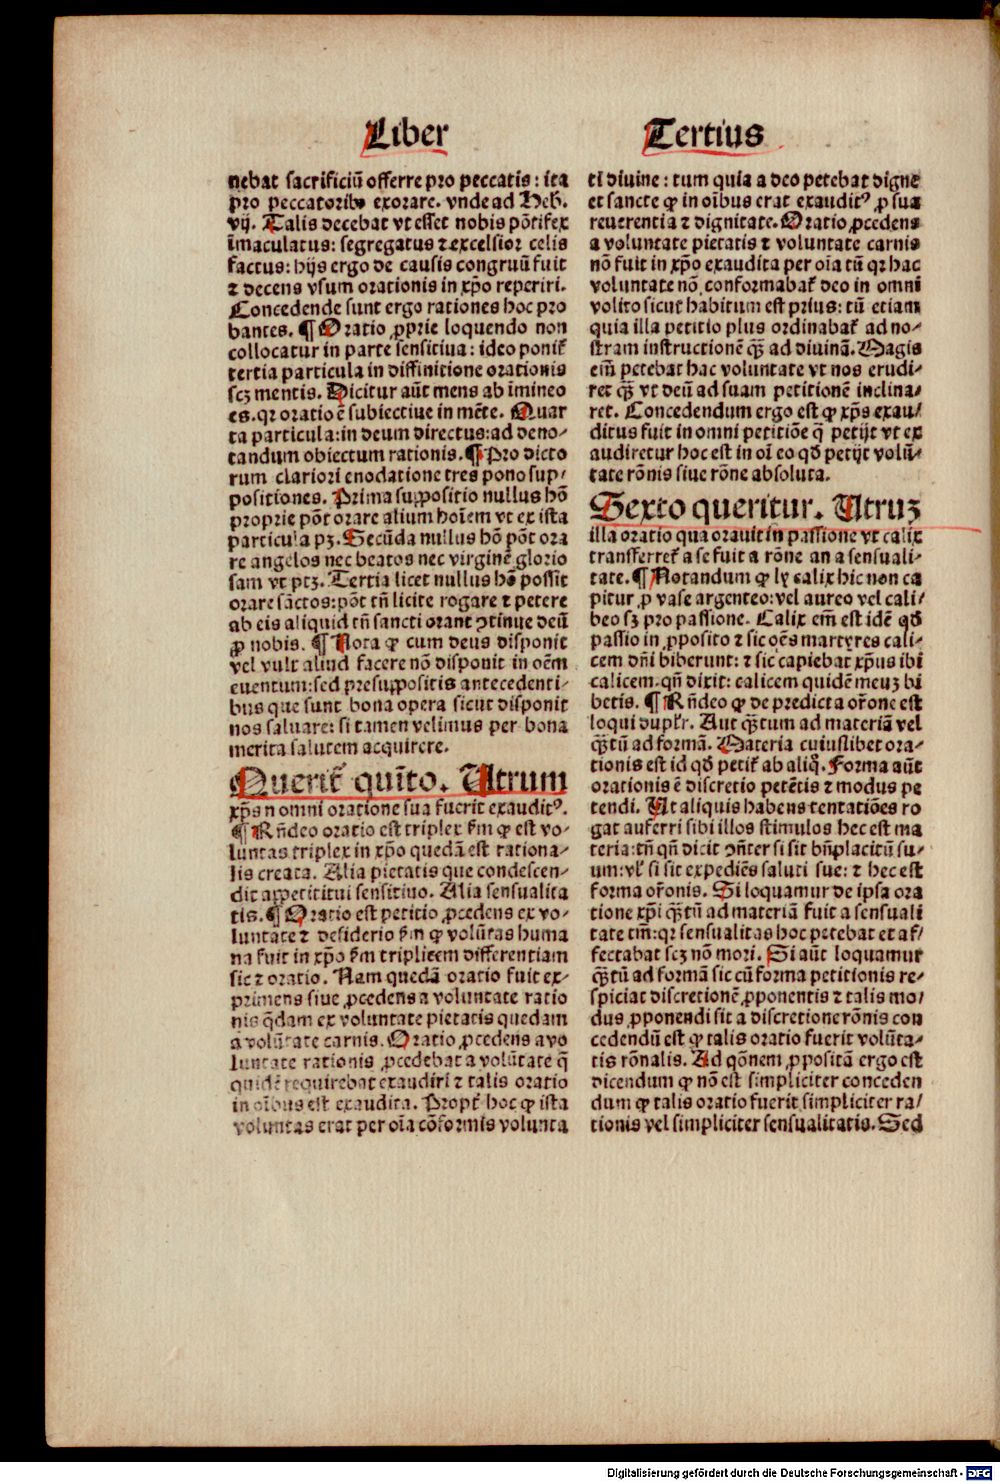 Liber
nebat sacrificiū offerre pro peccatis : ita
pro peccatoribꝰ exorare. vnde ad Heb.
vij. Talis decebat vt esset nobis põtifex
ĩmaculatus: segregatus ⁊ excelsior celis
factus: hijs ergo de causis congruū fuit
⁊ decens vsum orationis in xp̄o reperiri.
Concedende sunt ergo rationes hoc pro
bantes. ¶ Oratio ꝓprie loquendo non
collocatur in parte sensitiua : ideo ponit᷑
tertia particula in diffinitione orationis
scꝫ mentis. Dicitur aūt mens ab ĩmineo
es. qꝛ oratio ē subiectiue in mēte. Quar
ta particula: in deum directus: ad deno⸗
tandum obiectum rationis. ¶ Pro dicto
rum clariori enodatione tres pono sup⸗
positiones. Prima suppositio nullus hō
proprie pōt orare alium hoīem vt ex ista
particula pꝫ. Secūda nullus hō pōt ora
re angelos nec beatos nec virginē glorio
sam vt ptꝫ. Tertia licet nullus hō possit
orare sāctos: pōt tn̄ licite rogare ⁊ petere
ab eis aliquid tn̄ sancti orant ꝯtinue deū
ꝓ nobis. ¶ Nota ꝙ cum deus disponit
vel vult aliud facere nō disponit in oēm
euentum: sed presuppositis antecedenti⸗
bus que sunt bona opera sicut disponit
nos saluare: si tamen velimus per bona
merita salutem acquirere.
Querit᷑ quīto. Utrum
xp̄s n omni oratione sua fuerit exauditꝰ.
¶ Rn̄deo oratio est triplex ẜm ꝙ est vo⸗
luntas triplex in xp̄o quedā est rationa⸗
lis creata. Alia pietatis que condescen⸗
dit appetitui sensitiuo. Alia sensualita
tis. ¶ Oratio est petitio ꝓcedens ex vo⸗
luntate ⁊ desiderio ẜm ꝙ volūtas huma
na fuit in xp̄o ẜm triplicem differentiam
sic ⁊ oratio. Nam quedā oratio fuit ex⸗
primens siue ꝓcedens a voluntate ratio
nis q̄dam ex voluntate pietatis quedam
a volūtate carnis. Oratio ꝓcedens a vo
luntate rationis ꝓcedebat a volūtate q̄
quidē requirebat exaudiri ⁊ talis oratio
in oībus est exaudita. Propt̄ hoc ꝙ ista
voluntas erat per oīa cōformis volunta
Tertius
ti diuine : tum quia a deo petebat digne
et sancte ꝙ in oībus erat exauditꝰ ꝓ sua
reuerentia ⁊ dignitate. Oratio ꝓcedens
a voluntate pietatis ⁊ voluntate carnis
nō fuit in xp̄o exaudita per oīa tū qꝛ hac
voluntate nō conformabat᷑ deo in omni
volito sicut habitum est prius: tū etiam
quia illa petitio plus ordinabat᷑ ad no⸗
stram instructionē q̄ꝫ ad diuinā. Magis
em̄ petebat hac voluntate vt nos erudi⸗
ret q̄ꝫ vt deū ad suam petitionē inclina⸗
ret. Concedendum ergo est ꝙ xp̄s exau⸗
ditus fuit in omni petitiōe q̄ petijt vt ex
audiretur hoc est in oī eo qd̄ petijt volū⸗
tate rōnis siue rōne absoluta.
Sexto queritur. Utruꝫ
illa oratio qua orauit in passione vt calix
transferret᷑ a se fuit a rōne an a sensuali⸗
tate. ¶ Notandum ꝙ ly calix hic non ca
pitur ꝓ vase argenteo: vel aureo vel cali⸗
beo sꝫ pro passione. Calix em̄ est idē qd̄
passio in ꝓposito ⁊ sic oēs martyres cali⸗
cem dn̄i biberunt: ⁊ sic capiebat xp̄us ibi
calicem. qn̄ dixit: calicem quidē meuꝫ bi
betis. ¶ Rn̄deo ꝙ de predicta or̄one est
loqui duplr̄. Aut q̄ꝫtum ad materiā vel
q̄ꝫtū ad formā. Materia cuiuslibet ora⸗
tionis est id qd̄ petit᷑ ab aliq̊. Forma aūt
orationis ē discretio petētis ⁊ modus pe
tendi. Ut aliquis habens tentatiōes ro
gat auferri sibi illos stimulos hec est ma
teria: tn̄ qn̄ dicit ꝯn̄ter si sit bn̄placitū su⸗
um: vl̓ si sit expediēs saluti sue: ⁊ hec est
forma or̄onis. Si loquamur de ipsa ora
tione xp̄i q̄ꝫtū ad materiā fuit a sensuali
tate tm̄: qꝛ sensualitas hoc petebat et af⸗
fectabat scꝫ nō mori. Si aūt loquamur
q̄ꝫtū ad formā sic cū forma petitionis re⸗
spiciat discretionē ꝓponentis ⁊ talis mo⸗
dus ꝓponendi sit a discretione rōnis con
cedendū est ꝙ talis oratio fuerit volūta⸗
tis rōnalis. Ad qōnem ꝓpositā ergo est
dicendum ꝙ nō est simpliciter conceden
dum ꝙ talis oratio fuerit simpliciter ra⸗
tionis vel simpliciter sensualitatis. Sed
Digitalisierung gefördert durch die Deutsche Forschungsgemeinschaft - DFG